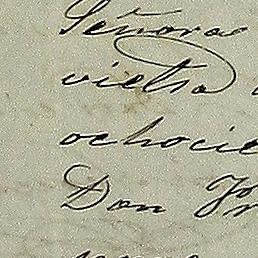 Señora
vielta
ochocie
Don Jo